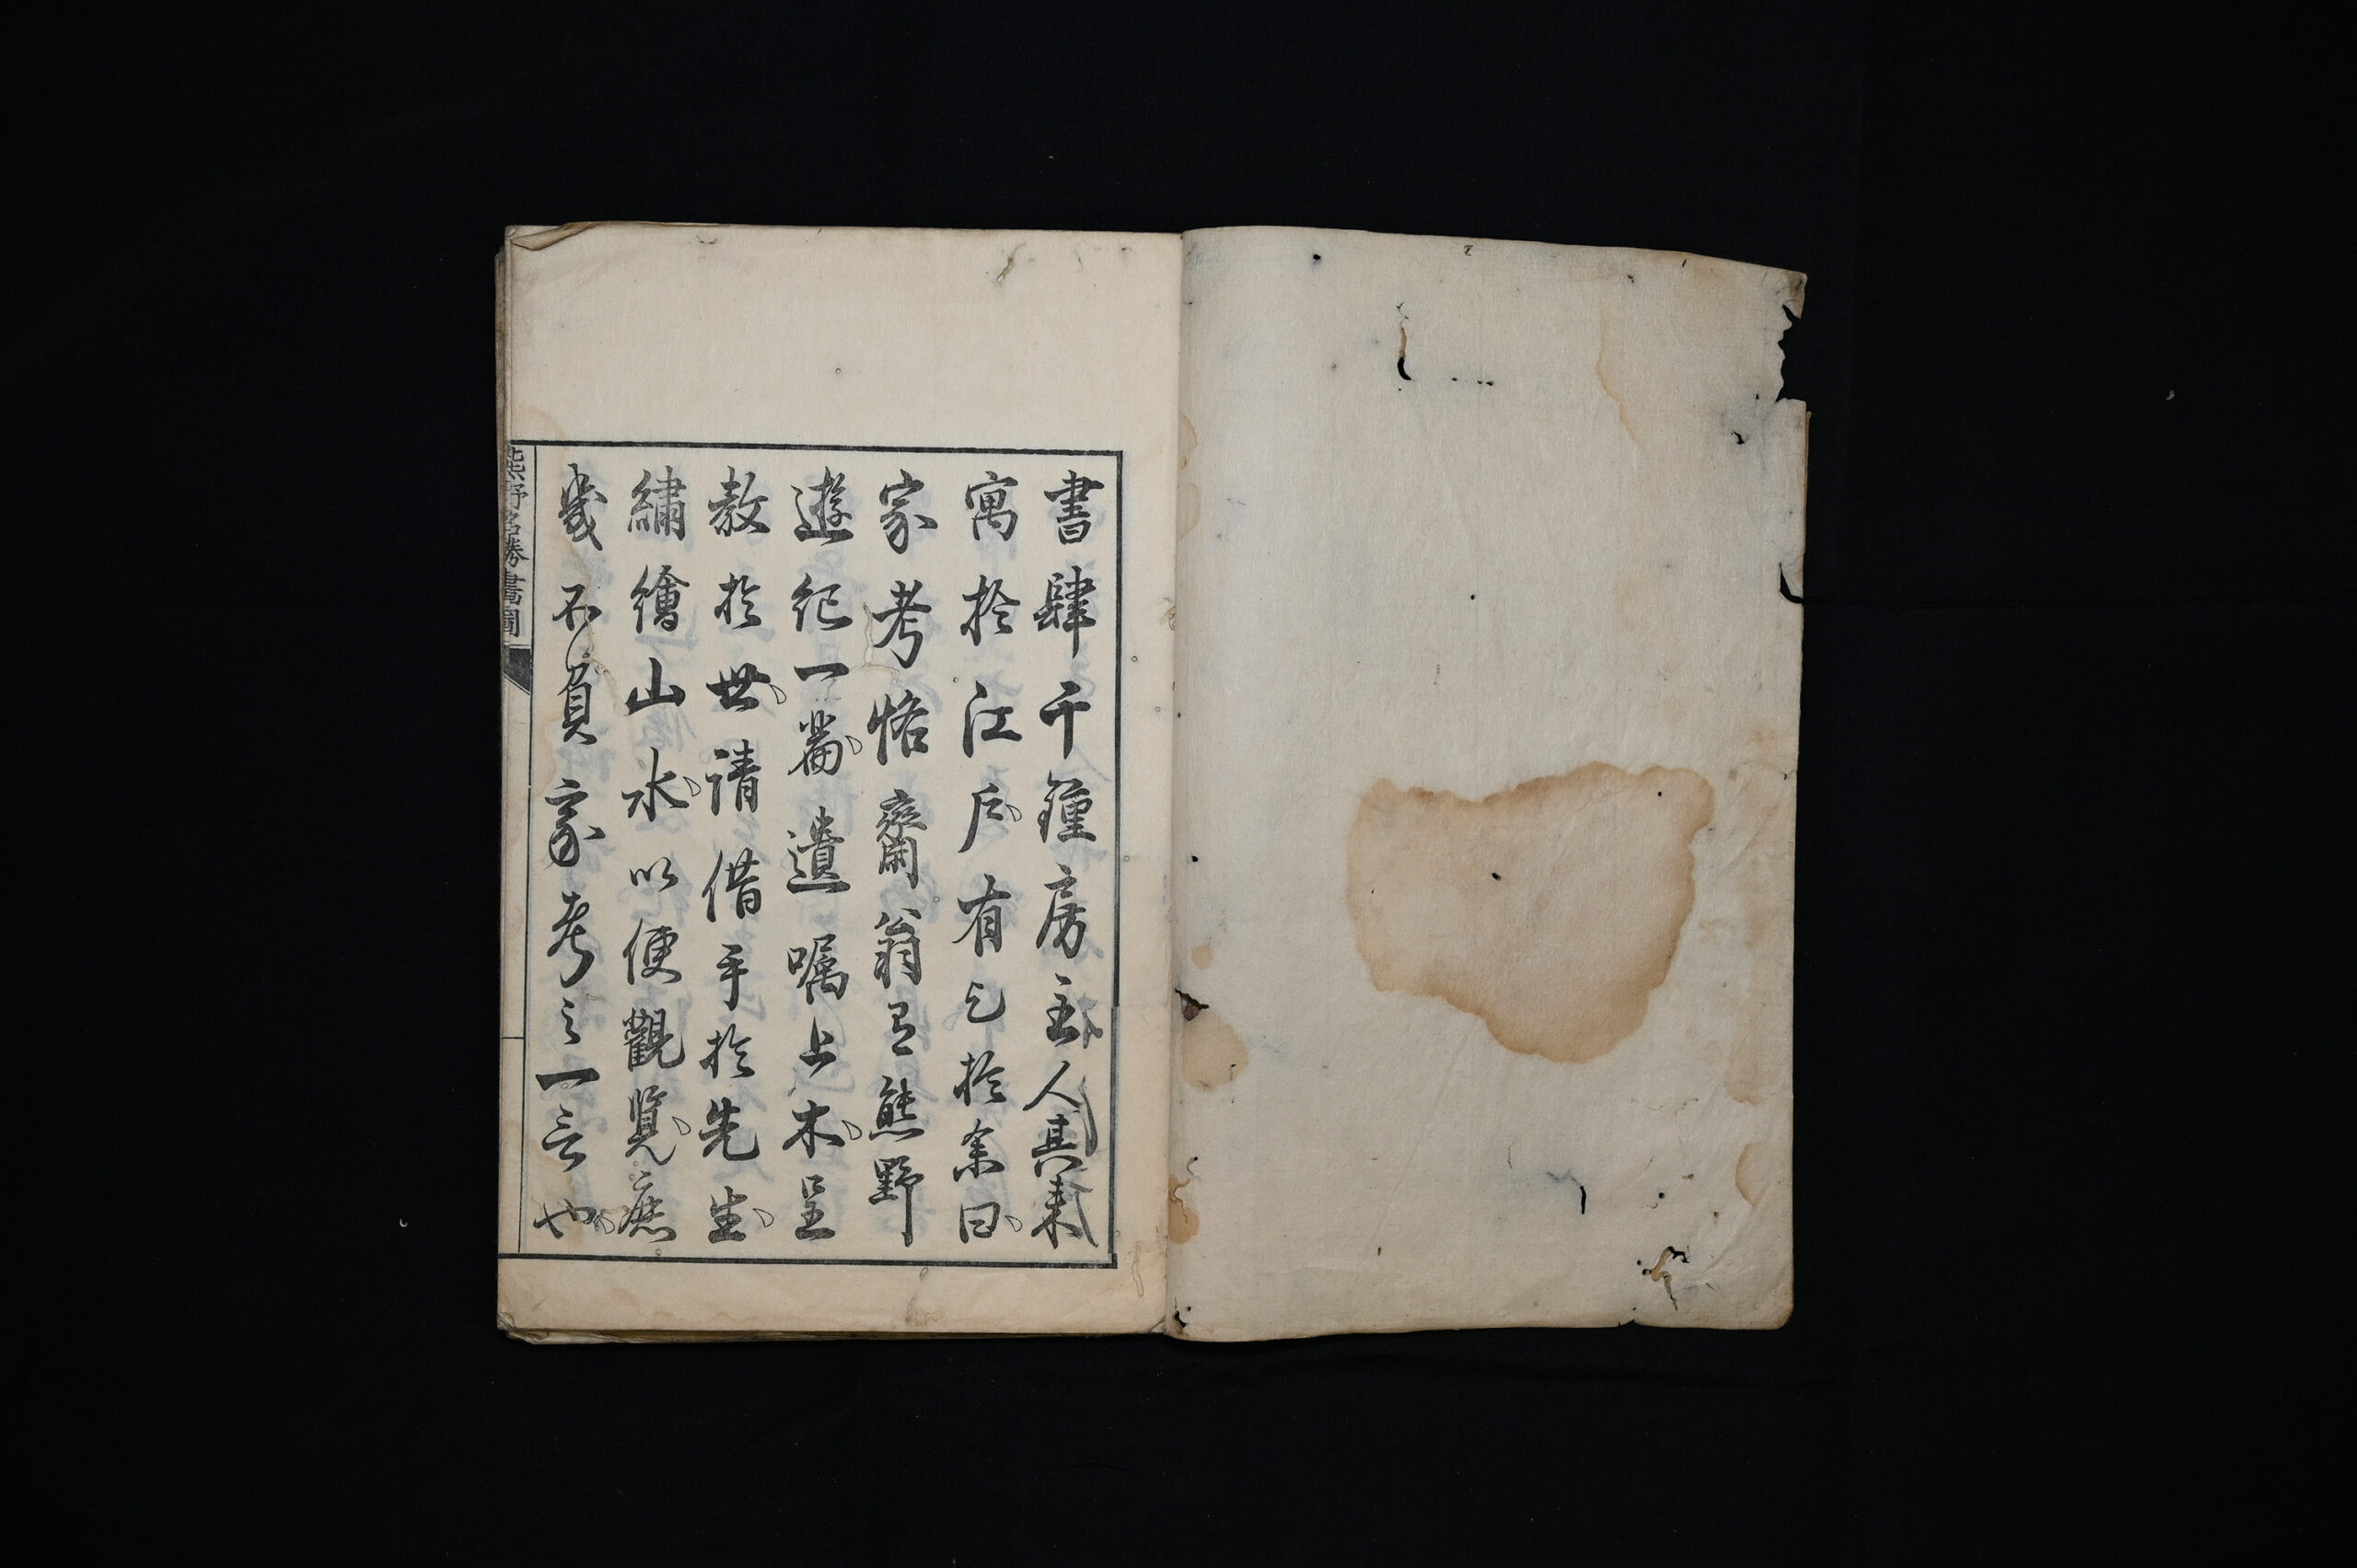 書肆千鍾房主人其来
寓於江戸有乞於余曰
家考恪齋翁有熊野
遊紀一篇遺嘱上木呈
教於世請借手於先生
繡繪山水以便觀覧庶
幾不負家考之一言也
熊野名勝畫圖